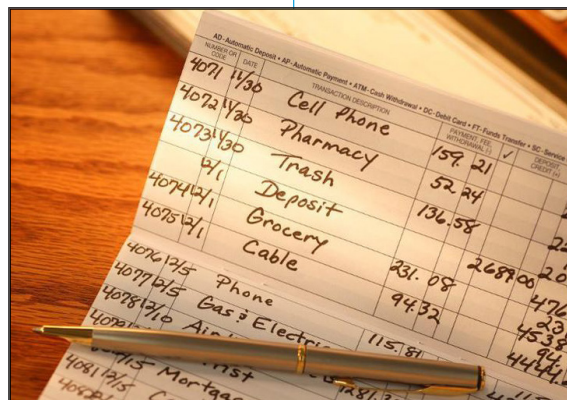 AD-Automatic Deposit • AP-Automatic Payment • ATM-Cash Withdrawal • DC-Debit Card • FT-Funds Transfer • SC-Service
NUMBER OR CODE DATE TRANSACTION DESCRIPTION PAYMENT, FEE, WITHDRAWAL (-) ✓ DEPOSIT, CREDIT (+)
4071 11/30 Cell Phone 159.21
4072 11/30 Pharmacy 52.24
4073 11/30 Trash 136.58
12/1 Deposit 2689.00
4074 12/1 Grocery 231.08 476
4075 12/1 Cable 94.32
4076 12/5 Phone
4077 12/5 Gas & Electric 115.81
4078 12/10
12/15
4081 12/15 Mortgage